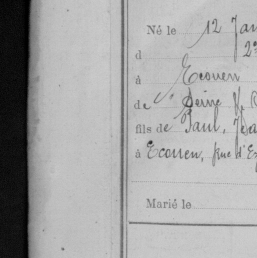 Né le 12 Jan
d
à Ecouen
de Seine &
fils de Paul,
à Ecouen, rue d'Ez
Marié le